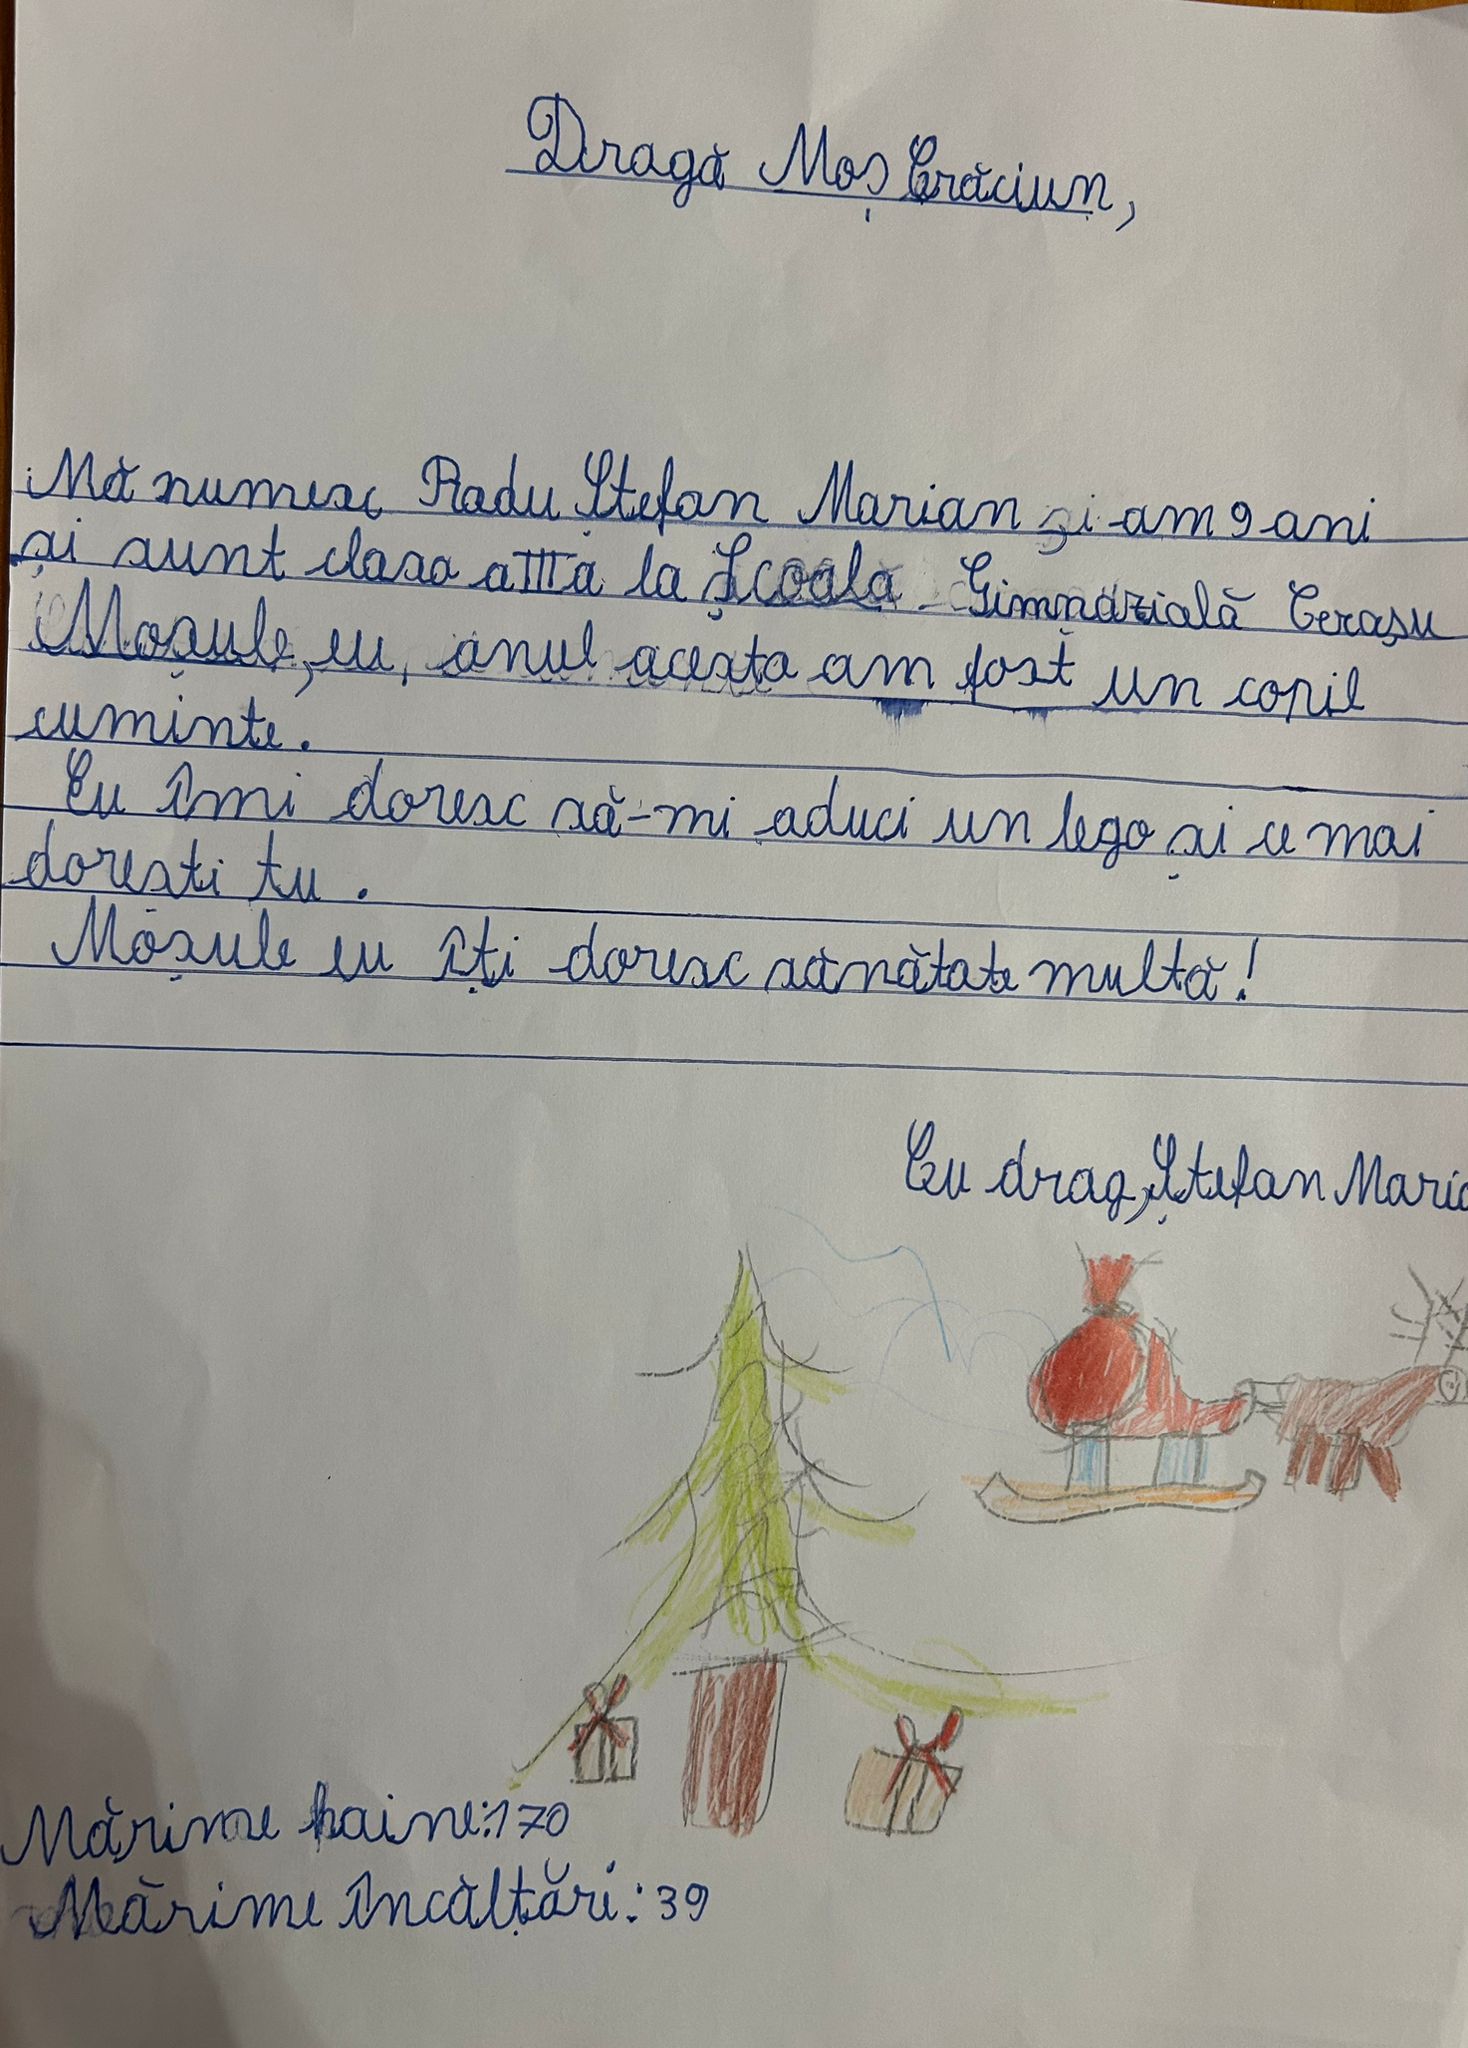 Dragă Moș Crăciun,
Mă numesc Radu Ștefan Marian și am 9 ani
și sunt clasa a III a la Școala Gimnazială Cerașu
Moșule, eu, anul acesta am fost un copil
cuminte.
Eu îmi doresc să-mi aduci un lego și ce mai
dorești tu.
Moșule eu îți doresc sănătate multă!
Cu drag, Ștefan Maria
Mărime haine: 170
Mărime încălțări: 39